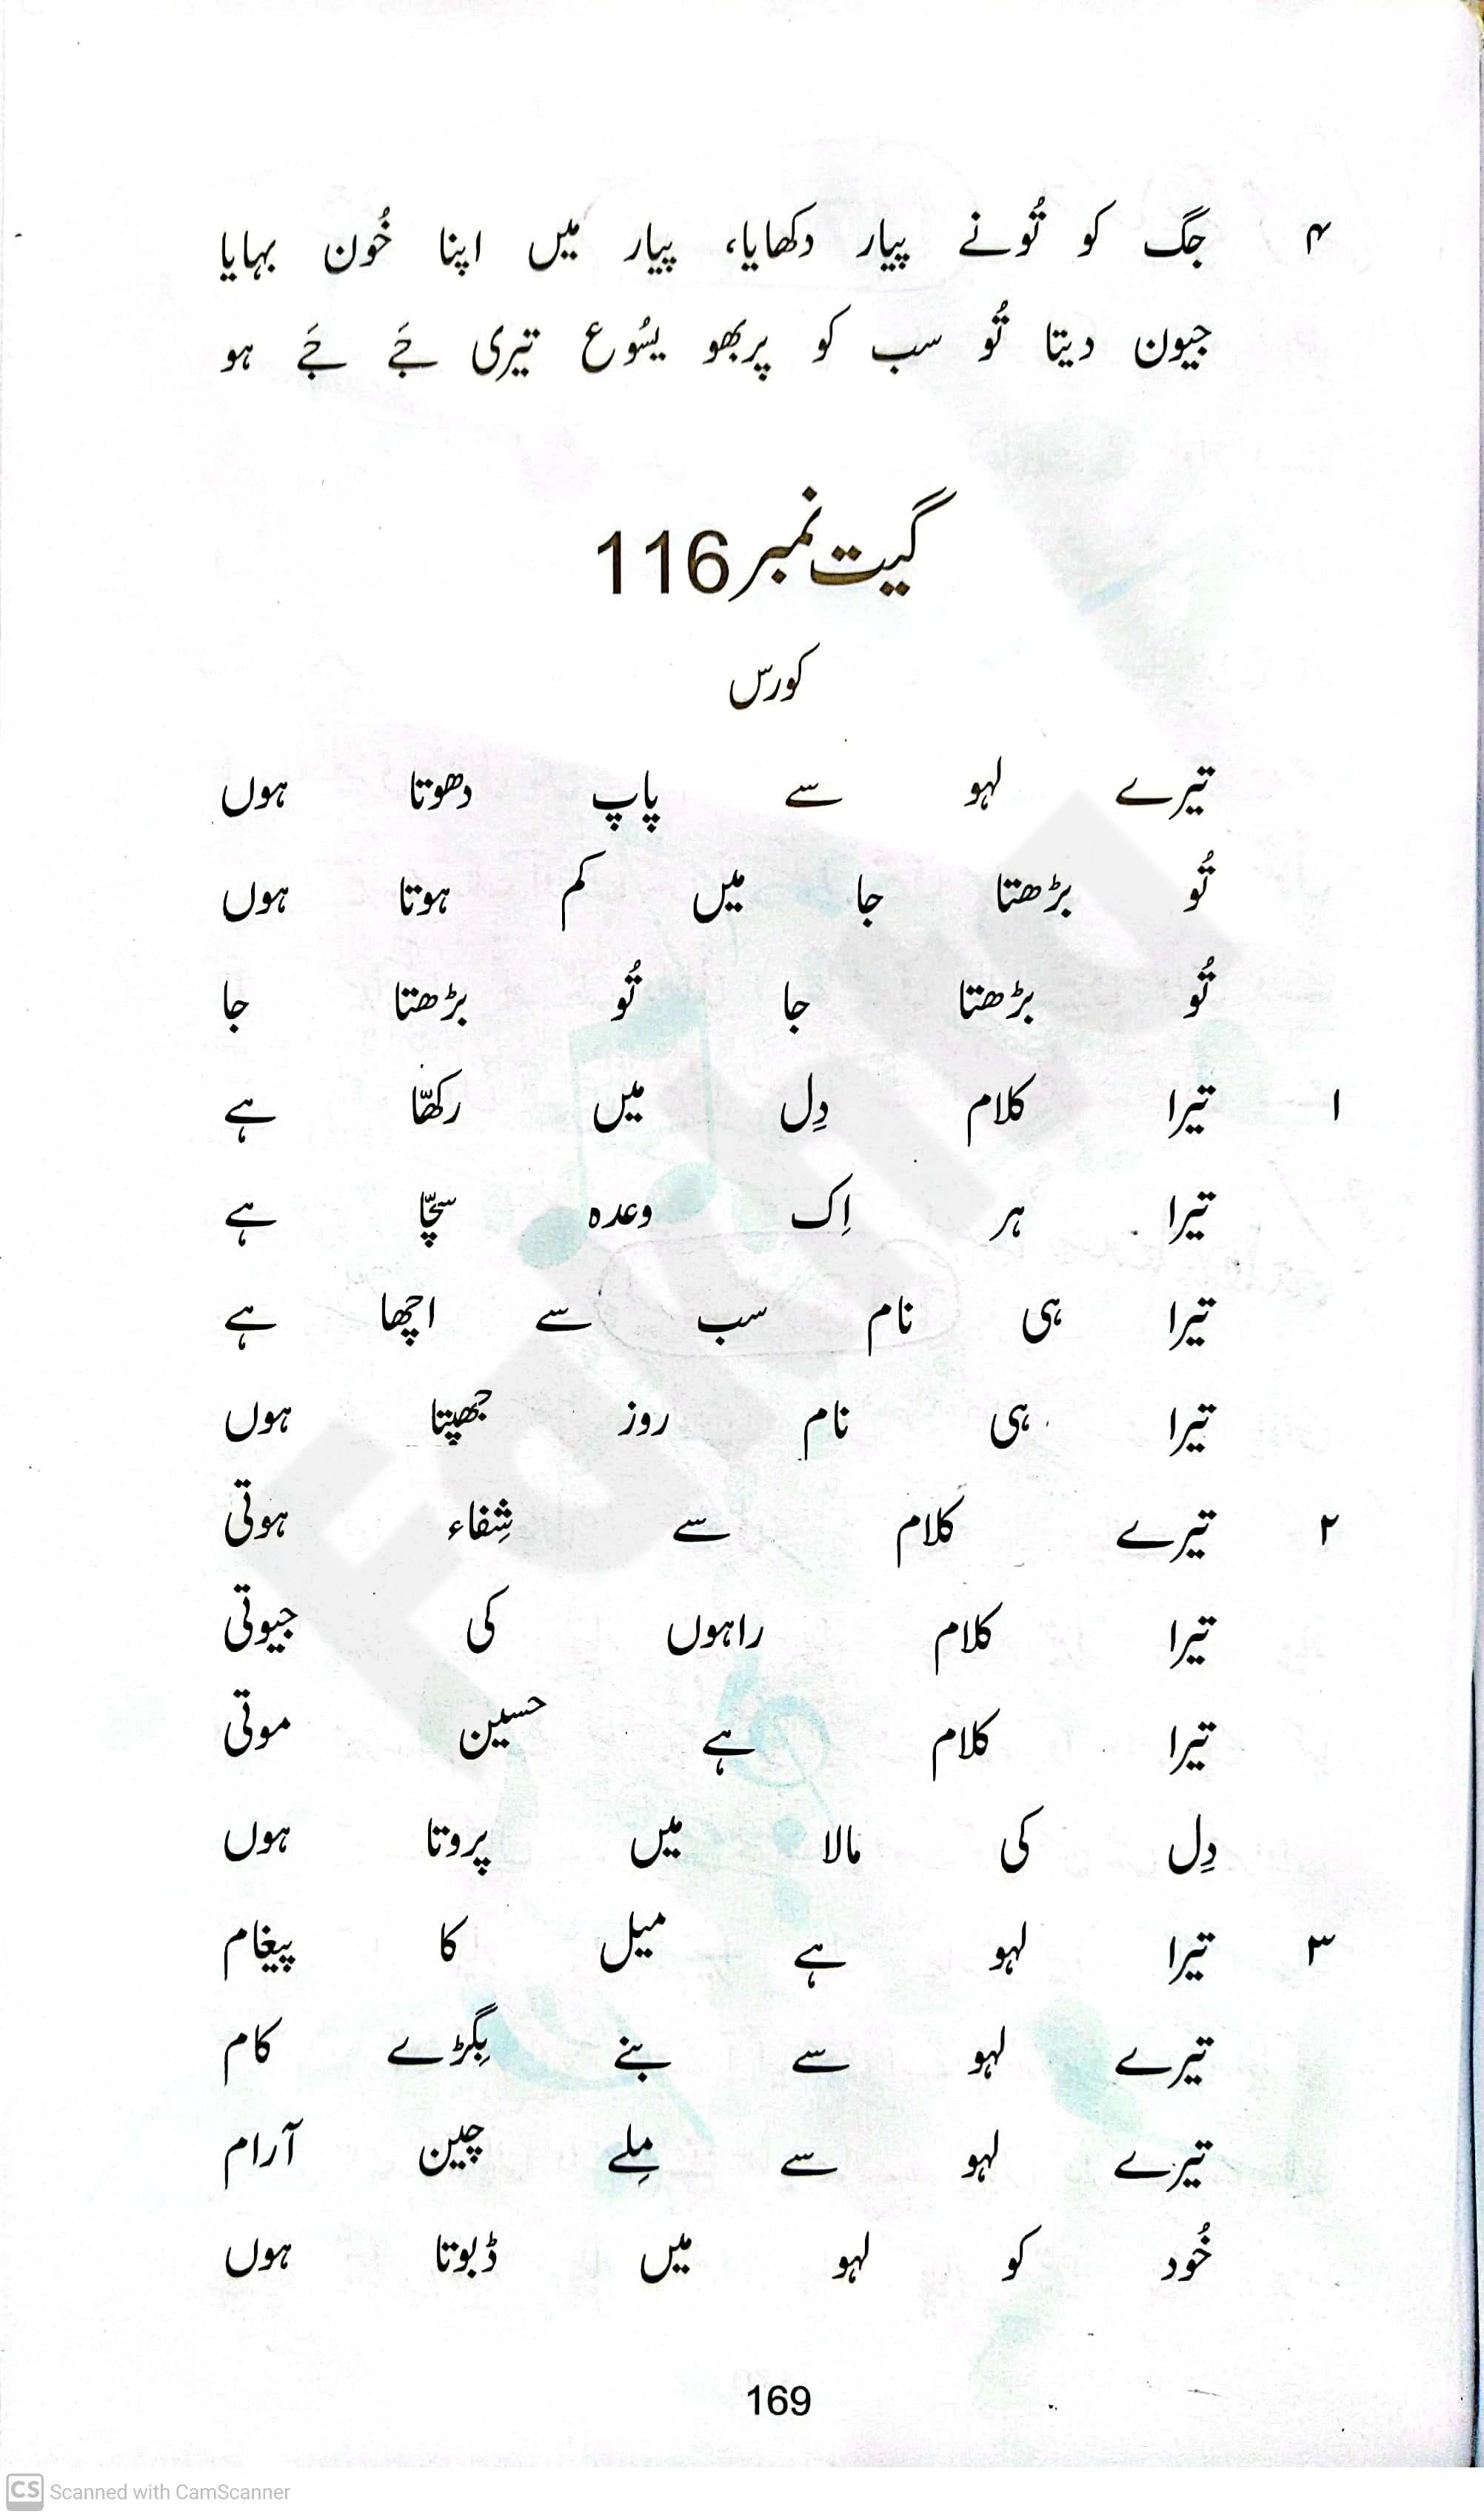 ۴ جگ کو تُونے پیار دکھایا، پیار میں اپنا خُون بہایا
جیون دیتا تُو سب کو پربھو یسُوع تیری جَے جَے ہو
گیت نمبر 116
کورس
تیرے لہو سے پاپ دھوتا ہوں
تُو بڑھتا جا میں کم ہوتا ہوں
تُو بڑھتا جا تُو بڑھتا جا
۱ تیرا کلام دِل میں رکھّا ہے
تیرا ہر اِک وعدہ سچّا ہے
تیرا ہی نام سب سے اچھا ہے
تیرا ہی نام روز جھپتا ہوں
۲ تیرے کلام سے شِفاء ہوتی
تیرا کلام راہوں کی جیوتی
تیرا کلام ہے حسین موتی
دِل کی مالا میں پروتا ہوں
۳ تیرا لہو ہے میل کا پیغام
تیرے لہو سے بنے بِگڑے کام
تیرے لہو سے مِلے چین آرام
خُود کو لہو میں ڈبوتا ہوں
169
Fakhta
CS Scanned with CamScanner